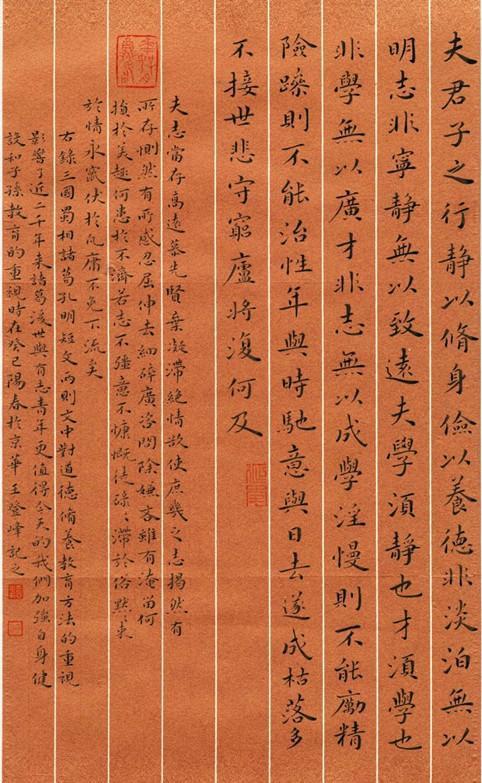 夫君子之行静以脩身儉以養德非淡泊無以
明志非寧静無以致遠夫學須静也才須學也
非學無以廣才非志無以成學淫慢則不能勵精
險躁則不能治性年與時馳意與日去遂成枯落多
不接世悲守窮廬將復何及
夫志當存高遠慕先賢棄凝滯絶情欲使庶幾之志揭然有
所存惻然有所感忍屈伸去細碎廣咨問除嫌吝雖有淹留何
損於美趣何患於不濟若志不強意不慷慨徒碌々滯於俗默々束
於情永竄伏於凡庸不免下流矣
右録三國蜀相諸葛孔明短文兩則文中對道德脩養教育方法的重視
影響了近二千年来諸葛後世與有志青年更值得今天的我們加強自身健
設和子孫教育的重視時在癸巳陽春於京華王登峰記之